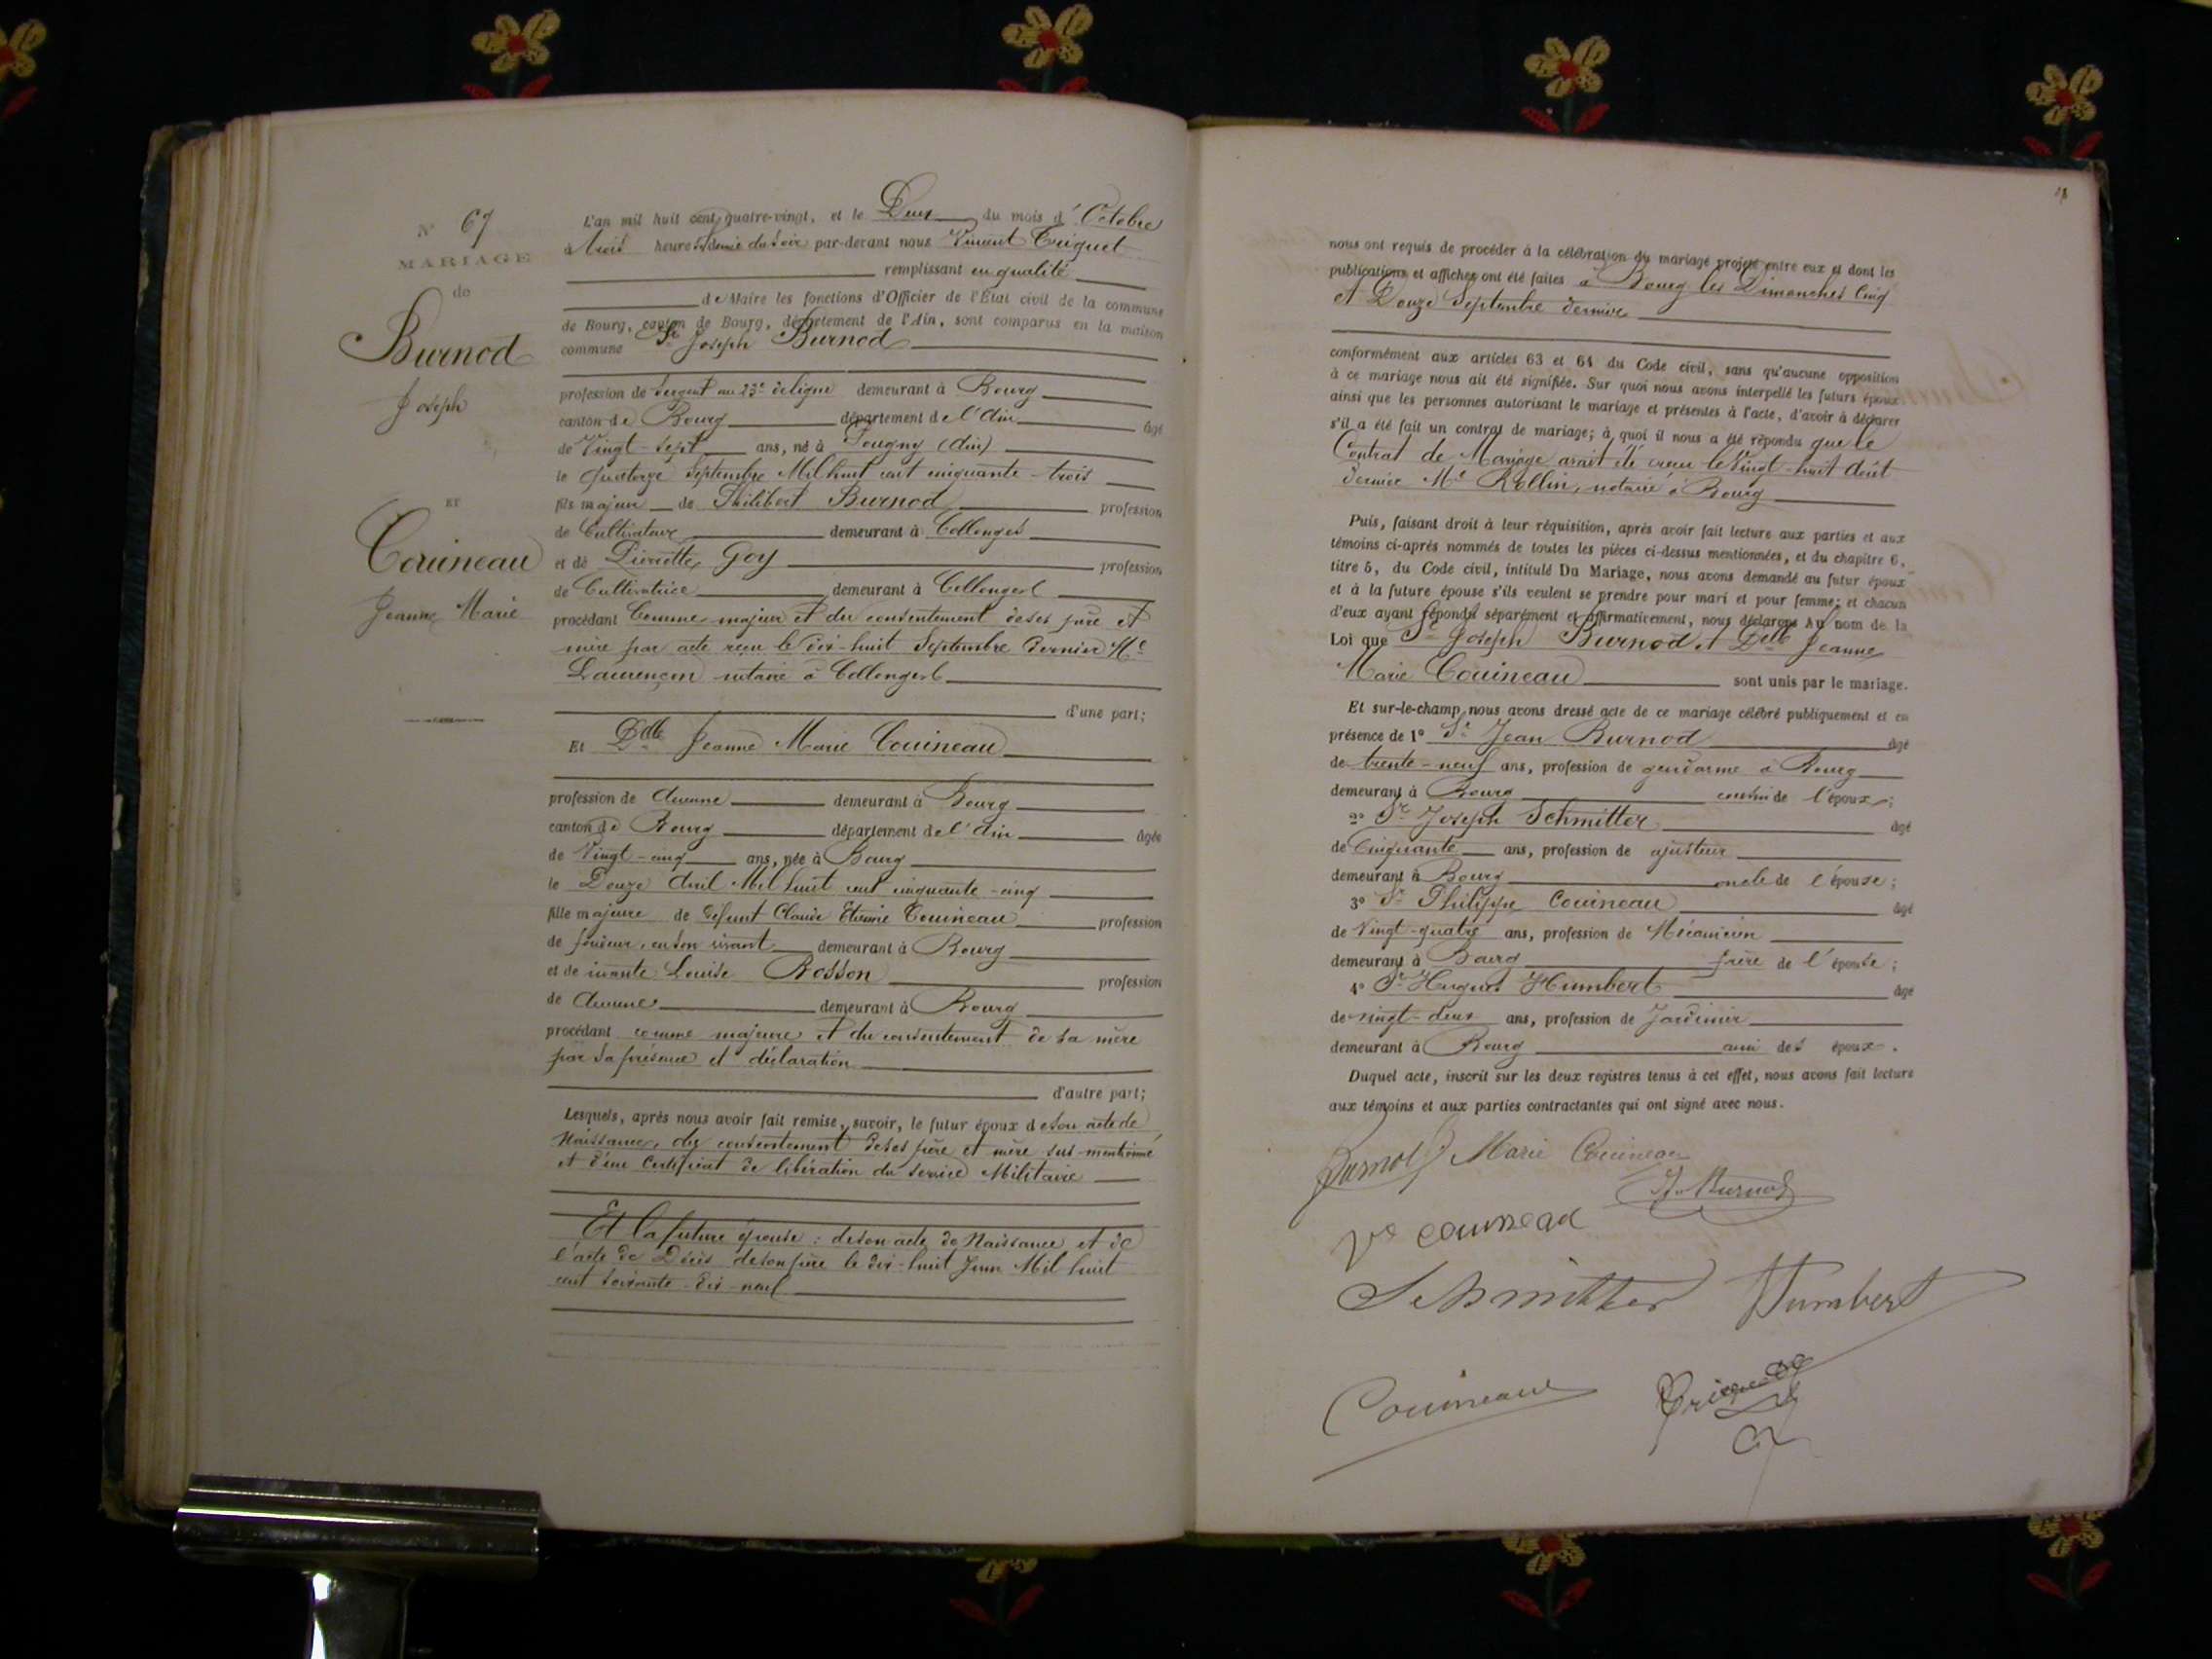 N° 67
MARIAGE
de
Burnod
Joseph
ET
Couineau
Jeanne Marie
L'an mil huit cent quatre-vingt, et le Deux du mois d'Octobre
à trois heures et demie du soir par-devant nous Vincent Triquet
remplissant en qualité
de Maire les fonctions d'Officier de l'État civil de la commune
de Bourg, canton de Bourg, département de l'Ain, sont comparus en la maison
commune Sr Joseph Burnod
profession de Sergent au 23e de ligne demeurant à Bourg
canton de Bourg département de l'Ain âgé
de Vingt-sept ans, né à Pougny (Ain)
le quatorze Septembre Mil huit cent cinquante-trois
fils majeur de Philibert Burnod profession
de Cultivateur demeurant à Collonges
et de Pierrette Goy profession
de Cultivatrice demeurant à Collonges
procédant Comme majeur et du consentement de ses père et
mère par acte reçu le dix-huit Septembre dernier Me
Laurençon notaire à Collonges
d'une part;
Et Delle Jeanne Marie Couineau
profession de Aucune demeurant à Bourg
canton de Bourg département de l'Ain âgée
de Vingt-cinq ans, née à Bourg
le Douze Avril Mil huit cent cinquante-cinq
fille majeure de défunt Claude Etienne Couineau profession
de fondeur, en son vivant demeurant à Bourg
et de vivante Louise Rosson profession
de Aucune demeurant à Bourg
procédant comme majeure et du consentement de sa mère
par sa présence et déclaration
d'autre part;
Lesquels, après nous avoir fait remise, savoir, le futur époux de son acte de
Naissance, du consentement de ses père et mère sus-mentionné
et d'un Certificat de libération du service Militaire
Et la future épouse: de son acte de Naissance et de
l'acte de Décès de son père le dix-huit Juin Mil huit
cent soixante-dix-neuf
nous ont requis de procéder à la célébration du mariage projeté entre eux et dont les
publications et affiches ont été faites à Bourg les Dimanches Cinq
et Douze Septembre dernier
conformément aux articles 63 et 64 du Code civil, sans qu'aucune opposition
à ce mariage nous ait été signifiée. Sur quoi nous avons interpellé les futurs époux
ainsi que les personnes autorisant le mariage et présentes à l'acte, d'avoir à déclarer
s'il a été fait un contrat de mariage; à quoi il nous a été répondu que le
Contrat de Mariage avait été reçu le Vingt-huit Août
dernier Me Rollin, notaire à Bourg
Puis, faisant droit à leur réquisition, après avoir fait lecture aux parties et aux
témoins ci-après nommés de toutes les pièces ci-dessus mentionnées, et du chapitre 6,
titre 5, du Code civil, intitulé Du Mariage, nous avons demandé au futur époux
et à la future épouse s'ils veulent se prendre pour mari et pour femme; et chacun
d'eux ayant répondu séparément et affirmativement, nous déclarons Au nom de la
Loi que Sr Joseph Burnod et Delle Jeanne
Marie Couineau sont unis par le mariage.
Et sur-le-champ nous avons dressé acte de ce mariage célébré publiquement et en
présence de 1° Sr Jean Burnod âgé
de trente-neuf ans, profession de gendarme à Bourg
demeurant à Bourg cousin de l'époux;
2° Sr Joseph Schmitter âgé
de Cinquante ans, profession de ajusteur
demeurant à Bourg oncle de l'épouse;
3° Sr Philippe Couineau âgé
de Vingt-quatre ans, profession de Mécanicien
demeurant à Bourg frère de l'épouse;
4° Sr Hugues Humbert âgé
de vingt-deux ans, profession de Jardinier
demeurant à Bourg ami des époux.
Duquel acte, inscrit sur les deux registres tenus à cet effet, nous avons fait lecture
aux témoins et aux parties contractantes qui ont signé avec nous.
Burnod Marie Couineau
J. Burnod
Ve Couineau
Schmitter Humbert
Couineau Triquet